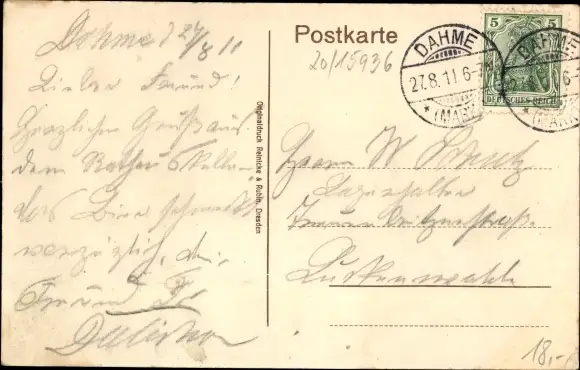 Dahme d 27/8 11
Postkarte
20/15936
Lieber Freund!
Herzlichen Gruß aus
dem Rathaus Keller
das Bier schmeckt
vorzüglich, dein
Freund
Originaldruck Reinicke & Rubin, Dresden
DAHME
27.8.11.6-7
* (MARK)
5 5
DEUTSCHES REICH
DAHME
* (MARK)
Herrn W
Luckenwalde
18,-